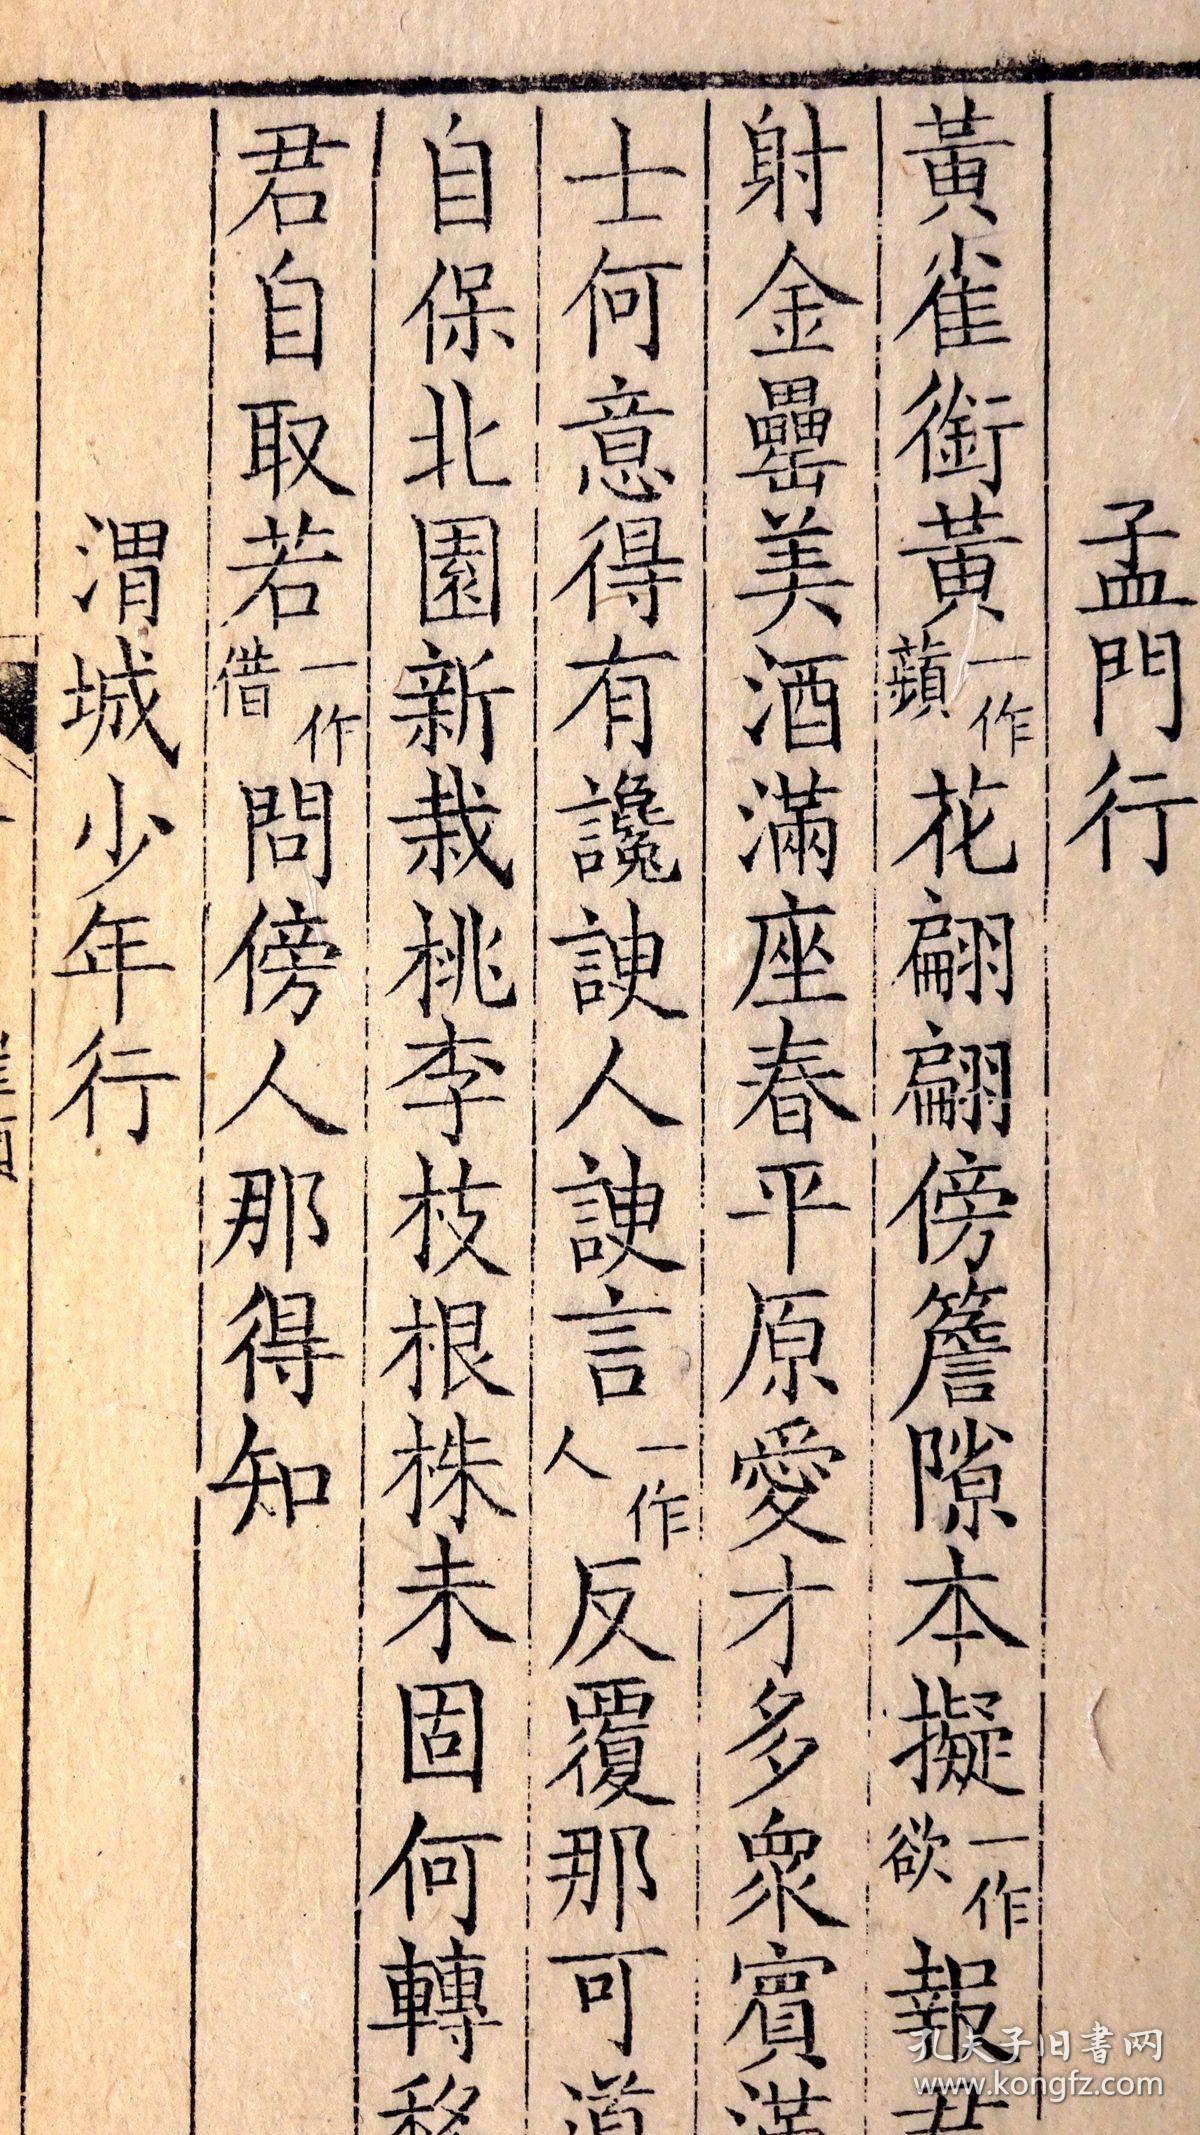 孟門行
黃雀銜黃一作蘋花翩翩傍簷隙本擬一作欲報君
射金罍美酒滿座春平原愛才多衆賓滿
士何意得有讒諛人諛言一作人反覆那可道
自保北園新栽桃李枝根株未固何轉移
君自取若一作借問傍人那得知
渭城少年行
孔夫子旧书网
www.kongfz.com